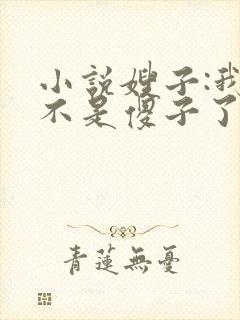 小説嫂子:我
不是傻子了
青蓮無憂